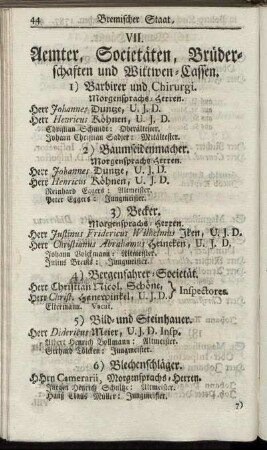 44 Bremischer Staat,
VII.
Aemter, Societäten, Brüder-
schaften und Wittwen-Cassen.
1) Barbirer und Chirurgi.
Morgensprachs-Herren.
Herr Johannes Duntze, U. J. D.
Herr Henricus Köhnen, U. J. D.
Christian Schmidt: Oberältster.
Johann Christian
2) Baumseidenmacher.
Morgensprachs Herren.
Herr Johannes Duntze, U. J. D.
Herr Henricus Köhnen, U. J. D.
Reinhard Eggers: Altmeister.
Peter Eggers: Jungmeister.
3) Becker.
Morgensprachs Herren.
Herr Justinus Fridericus Wilhelmus Iken, U. J. D.
Herr Christianus Abrahamus Heineken, U. J. D.
Johann Altmeister.
Jungmeister.
4) Bergenfahrer-Societät.
Herr Christian Nicol. Schöne, } Inspectores.
Herr Christ. Henewinkel, U. J. D.
Eltermann. Vacat.
5) Bild- und Steinhauer.
Herr Didericus Meier, U. J. D. Insp.
Albert Henrich Vollmann: Altmeister.
Gerhard Jungmeister.
6) Blechenschläger.
HHrn Camerarii, Morgensprachs-Herren.
Jürgen Henrich Schultze: Altmeister.
Hans Claus Müller: Jungmeister.
7)